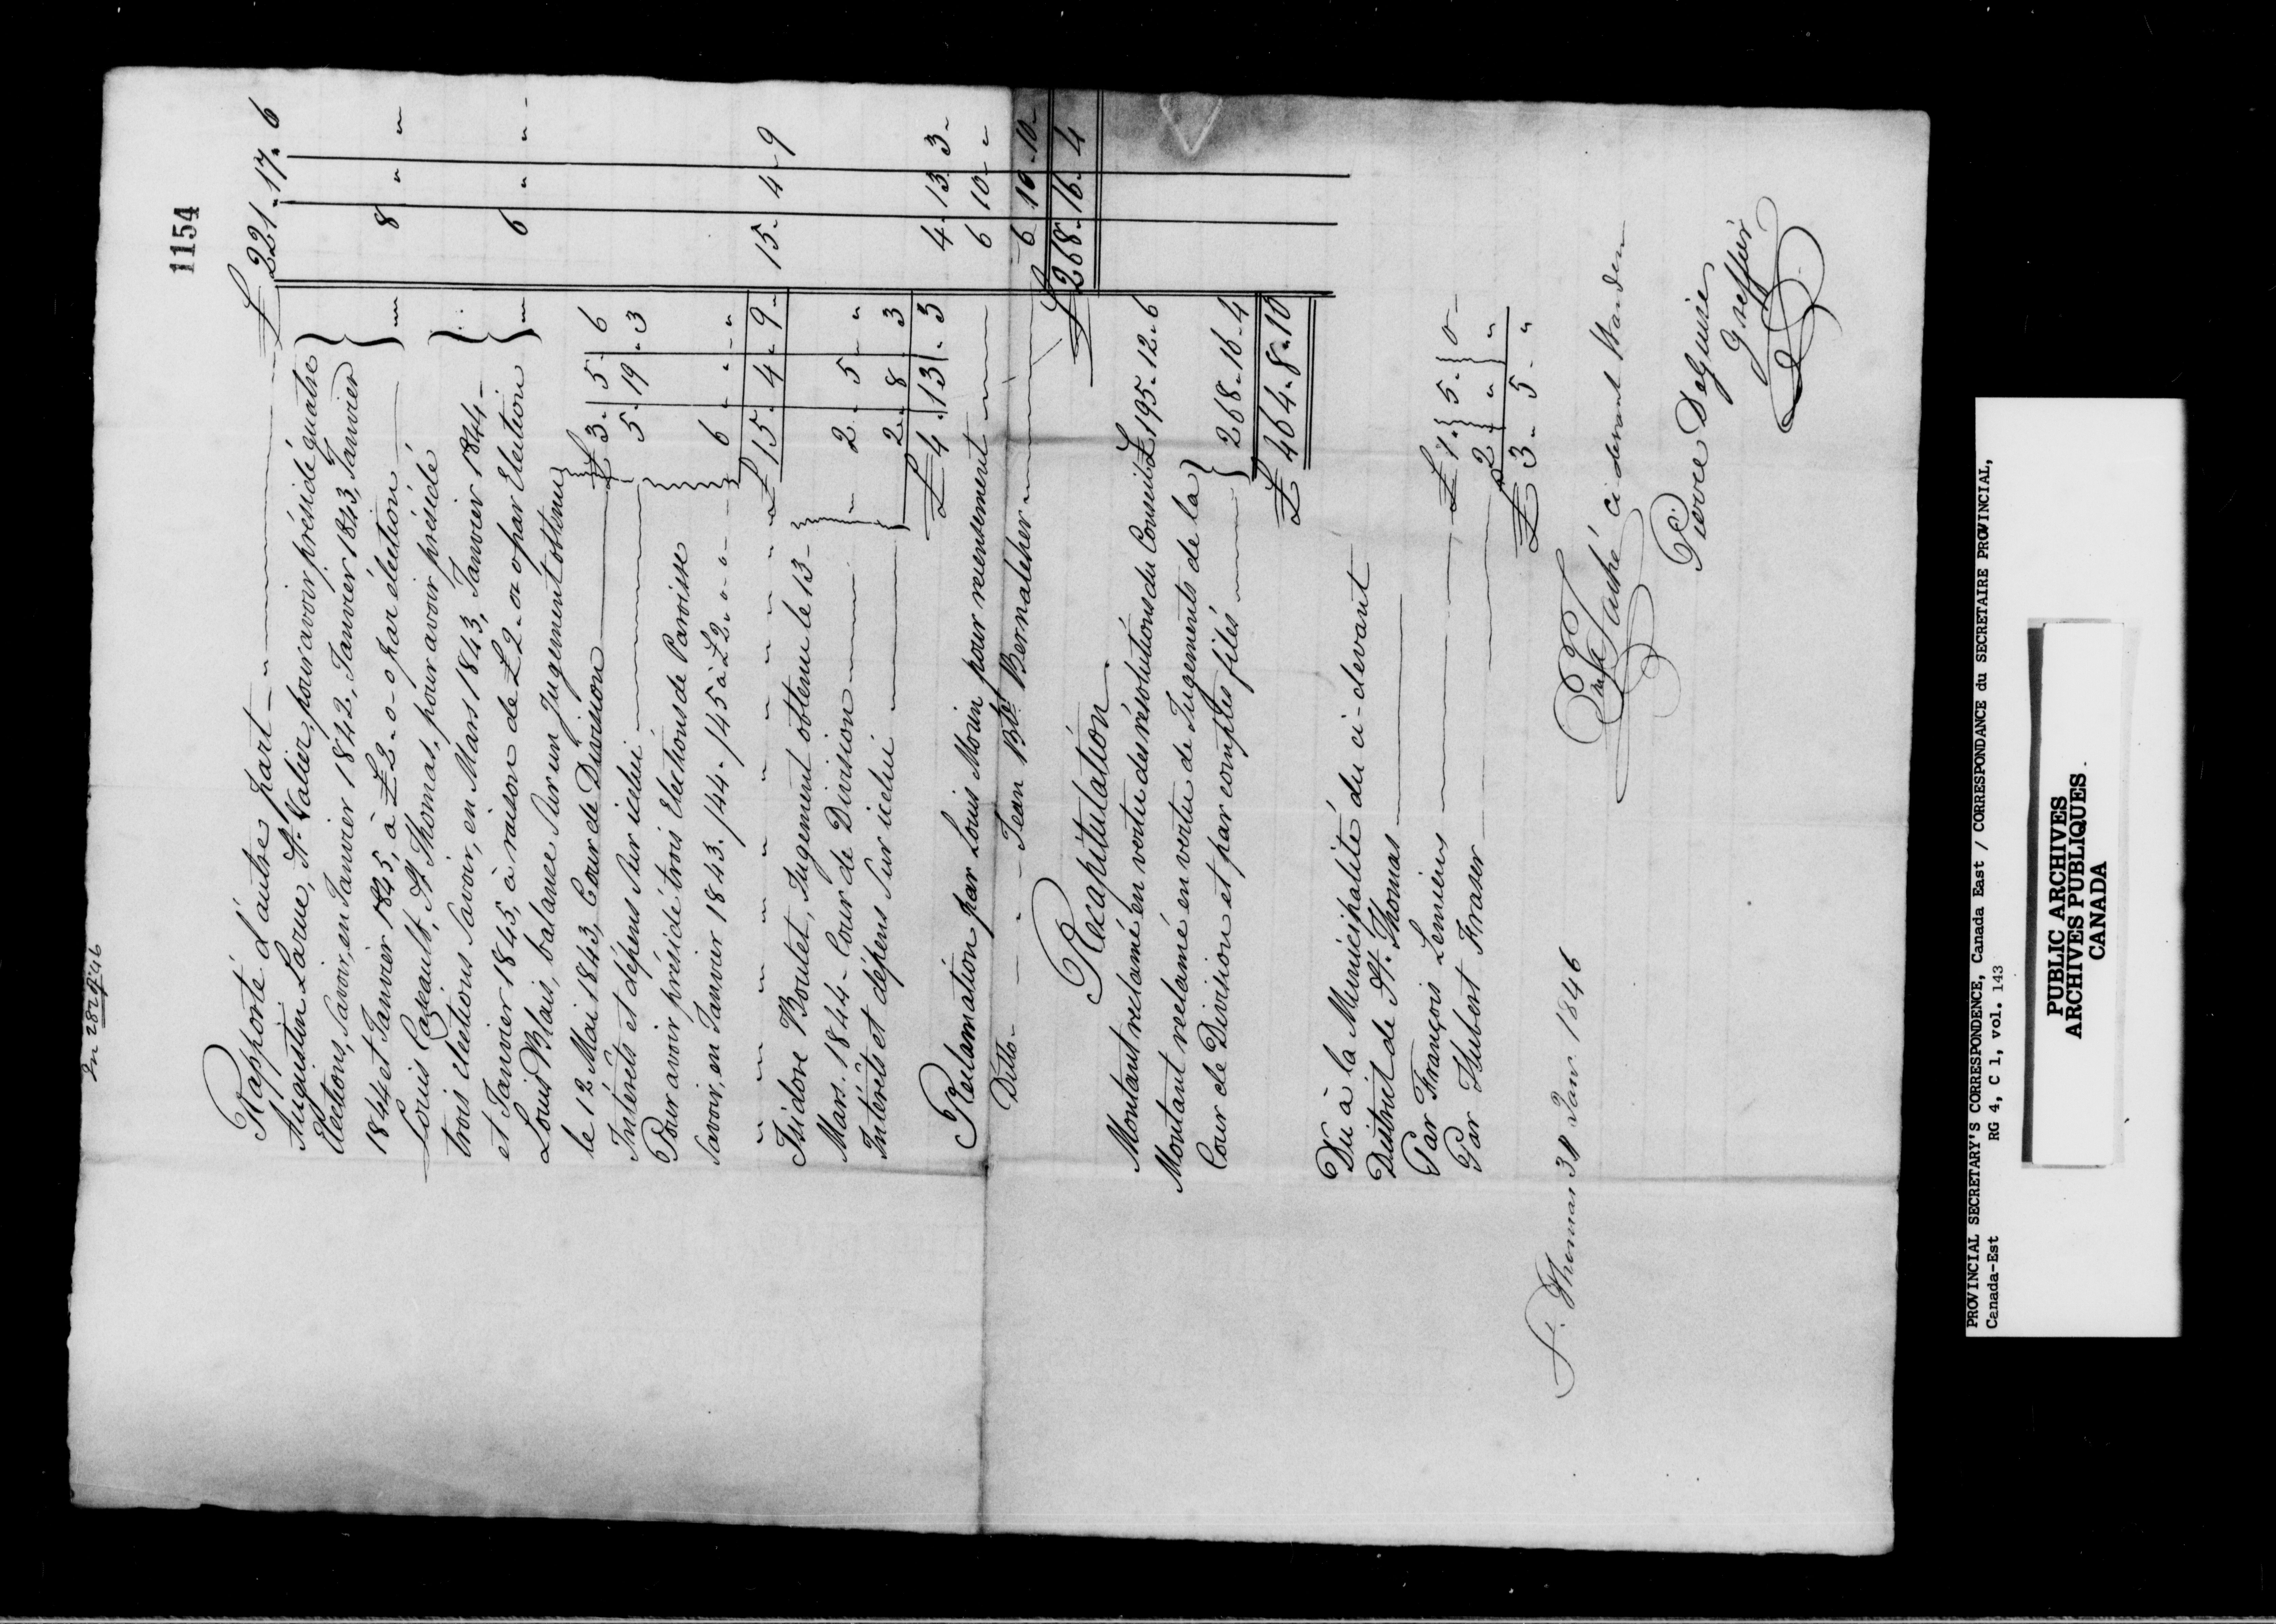 1154
In 282 9/46
Rapporté d'autre part £ 221. 17. 6
Augustin Larue, St. Valier, pour avoir présidé quatre
Elections, Savoir, en Janvier 1842, Janvier 1843, Janvier
1844 et Janvier 1845, à £2-0-0 par élection 8 " "
Louis Cazault, St Thomas, pour avoir présidé
trois élections Savoir, en Mars 1843, Janvier 1844
et Janvier 1845, à raison de £2-0-0 par Election 6 " "
Louis Blais, balance Sur un Jugement obtenu
le 12 Mai 1843, Cour de Division £ 3. 5. 6
Intérêts et dépens Sur icelui 5. 19. 3
Pour avoir présidé trois Elections de Paroisse
Savoir, en Janvier 1843. /44. /45 à £2-0-0 6 " "
" " " " " " " " £ 15. 4. 9 15. 4. 9
Isidore Boulet, Jugement obtenu le 13
Mars. 1844 - Cour de Division 2. 5 "
Intérêts et dépens Sur icelui 2. 8. 3
£ 4. 13. 3 4. 13. 3
Réclamation par Louis Morin pour recensement 6 10 "
Ditto - - - Jean Bte. Bernatchez 6. 10. 10
£ 268. 16. 4
Recapitulation
Montant réclamé en vertu des résolutions du Conseil £195. 12. 6
Montant réclamé en vertu de Jugements de la
Cour de Division et par comptes filés 268. 16. 4
£ 464. 8. 10
Du à la Municipalité du ci-devant
District de St. Thomas
Par François Lemieux £ 1. 5. 0
Par Hubert Fraser 2 " "
£ 3. 5. "
St. Thomas 31 Janr. 1846
Taché ci devant Warden
Pierre Delguire
Greffier
PROVINCIAL SECRETARY'S CORRESPONDENCE, Canada East / CORRESPONDANCE du SECRETAIRE PROVINCIAL,
Canada-Est RG 4, C 1, vol. 143
PUBLIC ARCHIVES
ARCHIVES PUBLIQUES
CANADA